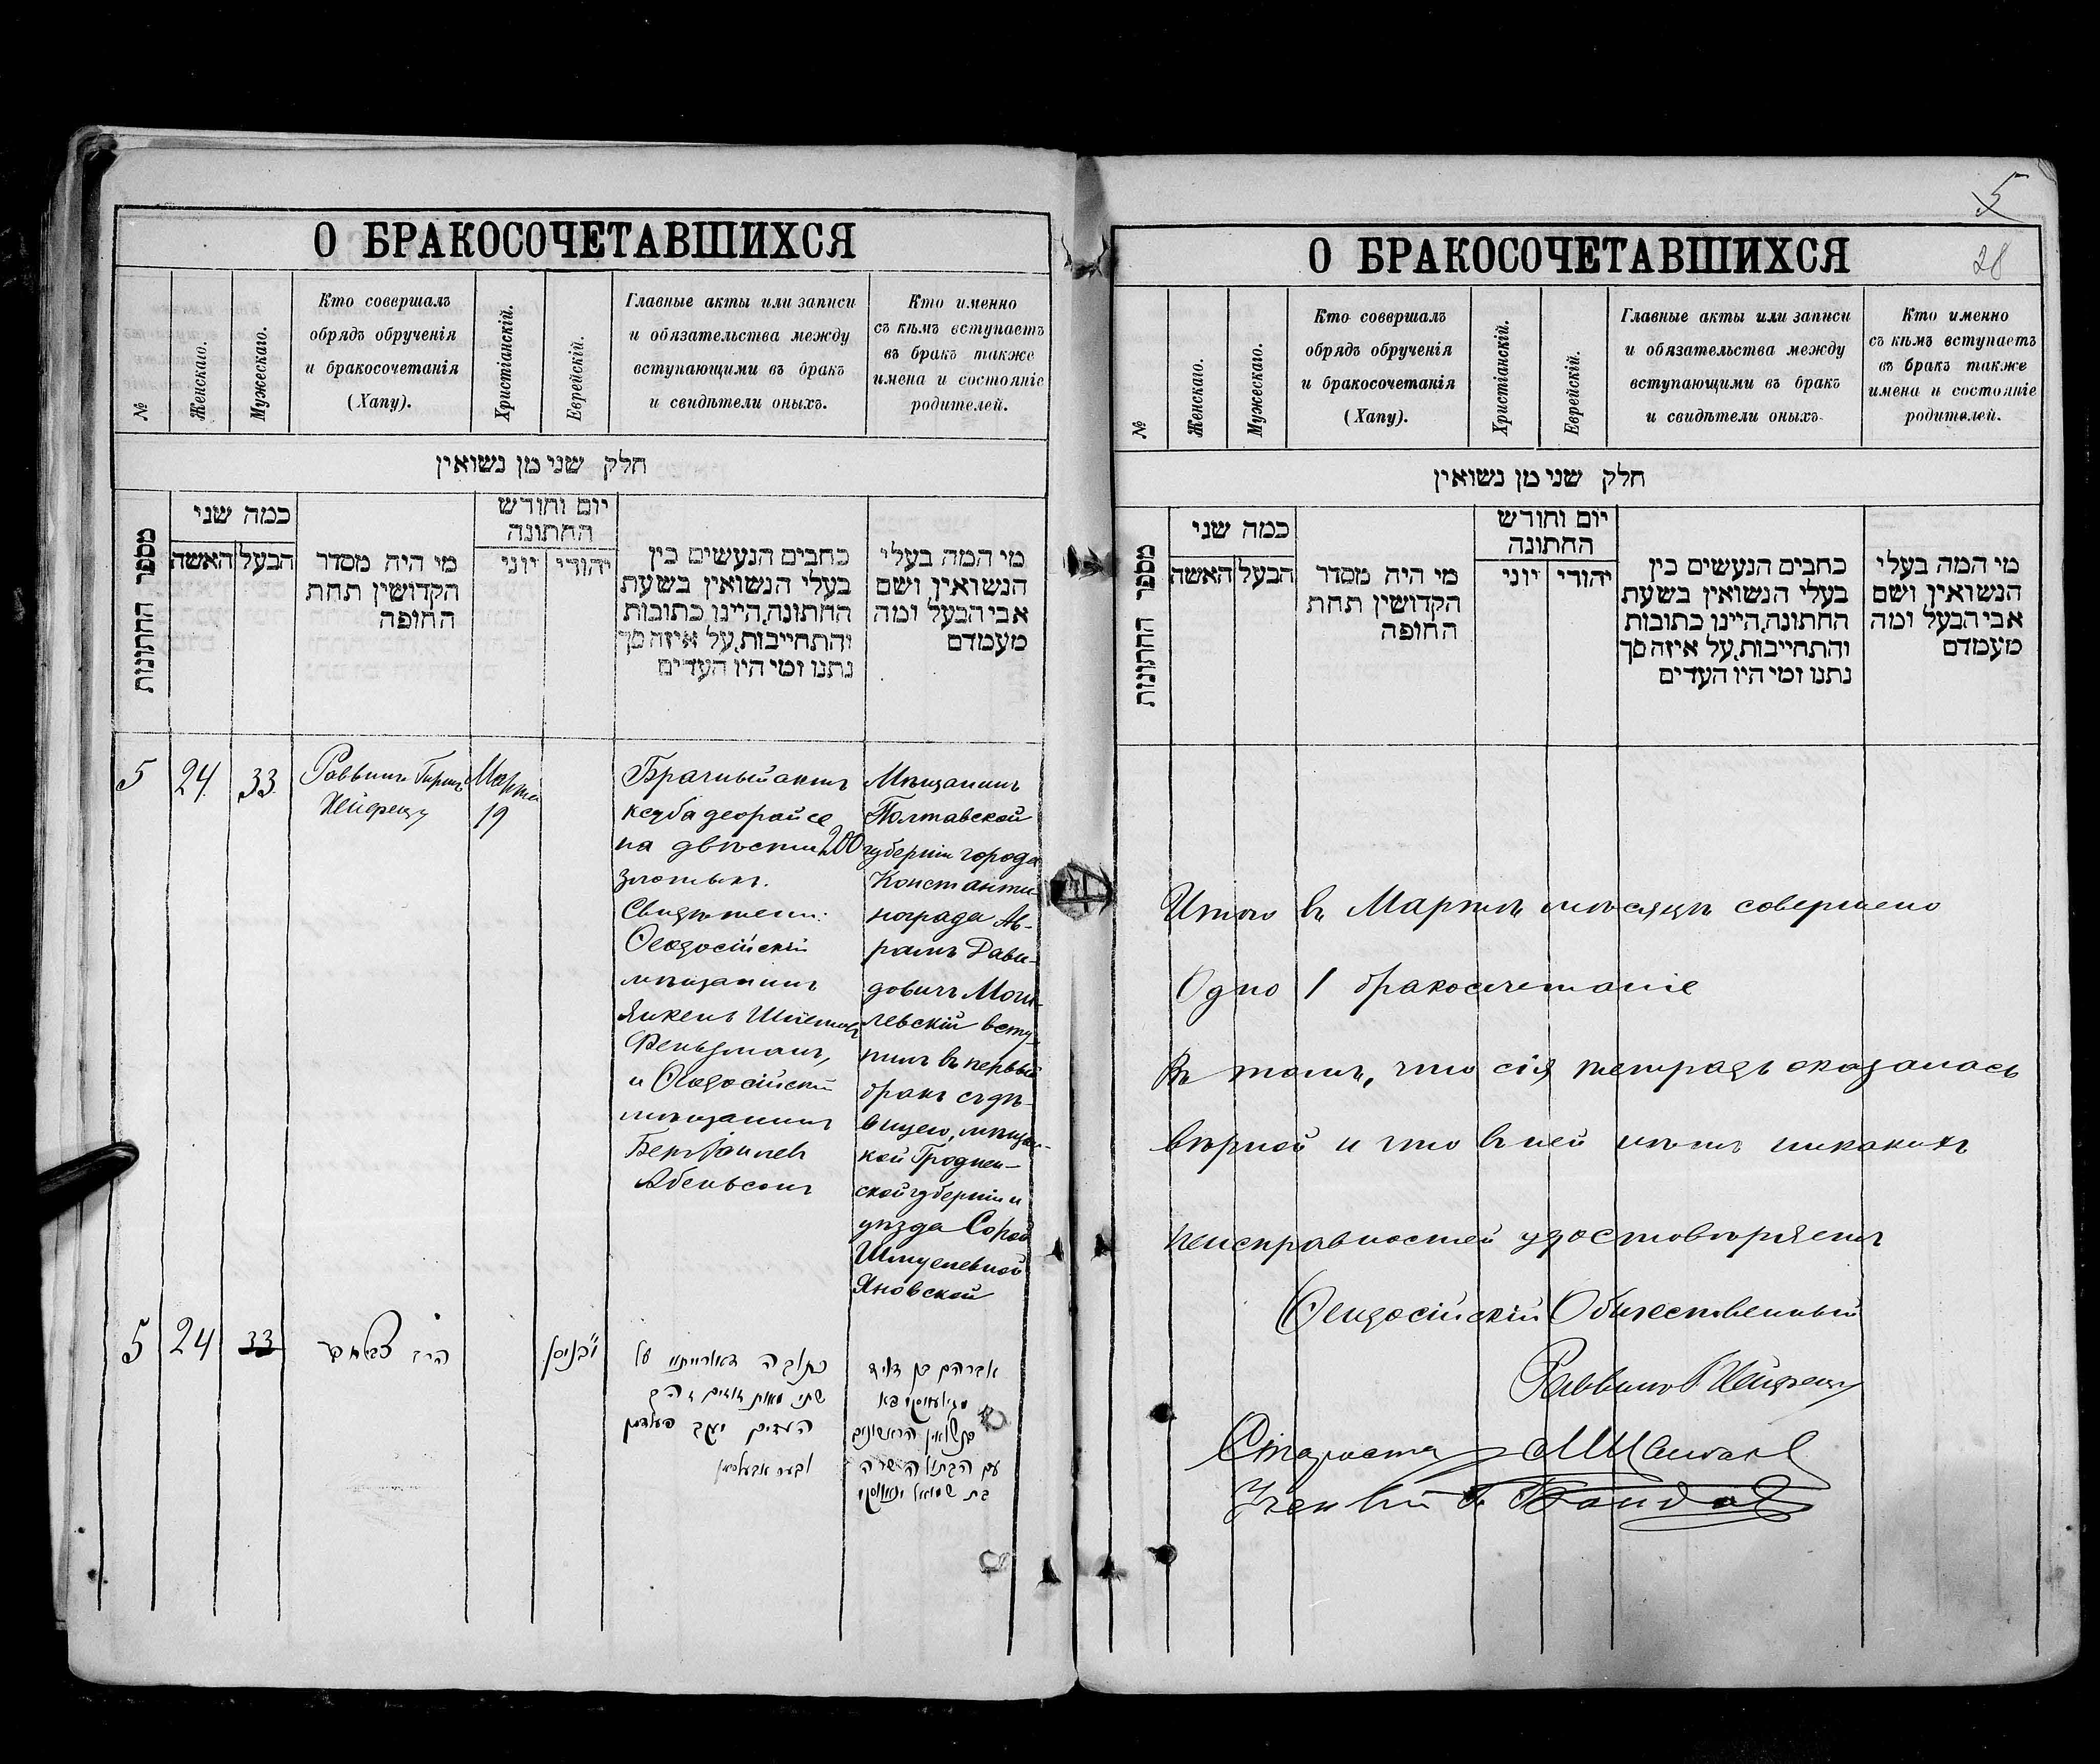 О БРАКОСОЧЕТАВШИХСЯ
№
Женскаго.
Мужескаго.
Кто совершалъ
обрядъ обрученія
и бракосочетанія
(Хапу).
Христіанскій.
Еврейскій.
Главные акты или записи
и обязательства между
вступающими въ бракъ
и свидѣтели оныхъ.
Кто именно
съ кѣмъ вступаетъ
въ бракъ также
имена и состояніе
родителей.
חלק שני מן נשואין
מספר החתונות
כמה שני
האשה
הבעל
מי היה מסדר
הקדושין תחת
החופה
יום וחודש
החתונה
יוני
יהודי
כתבים הנעשים בין
בעלי הנשואין בשעת
החתונה, היינו כתובות
והתחייבות, על איזה סך
נתנו ומי היו העדים
מי המה בעלי
הנשואין ושם
אבי הבעל ומה
מעמדם
5
24
33
Раввинъ Гиршъ
Хейфецъ
Марта
19
Брачный актъ
ксуба деорайсе
на двѣсти 200
злотыхъ.
Свидѣтели:
Ѳеодосійскій
мѣщанинъ
Янкель
Фельдманъ,
и Ѳеодосійскій
мѣщанинъ
Беръ
Абельсонъ
Мѣщанинъ
Полтавской
губерніи города
Константи-
нограда Ав-
рамъ Дави-
довичъ Моги-
левскій всту-
пилъ въ первый
бракъ съ дѣ-
вицею, мѣщан-
кой Гроднен-
ской губерніи и
уѣзда Сорой
Шмулевной
Яновской
5
24
33
הרב
י"ב ניסן
כתובה דאורייתא על
שתי מאות זהובים
העדים יעקב פעלדמן
ובער אבעלסאן
אברהם בן דוד
מגילעווסקי בא
בנשואין הראשונים
עם הבתולה שרה
בת שמואל יאנאווסקי
5
28
О БРАКОСОЧЕТАВШИХСЯ
№
Женскаго.
Мужескаго.
Кто совершалъ
обрядъ обрученія
и бракосочетанія
(Хапу).
Христіанскій.
Еврейскій.
Главные акты или записи
и обязательства между
вступающими въ бракъ
и свидѣтели оныхъ.
Кто именно
съ кѣмъ вступаетъ
въ бракъ также
имена и состояніе
родителей.
חלק שני מן נשואין
מספר החתונות
כמה שני
האשה
הבעל
מי היה מסדר
הקדושין תחת
החופה
יום וחודש
החתונה
יוני
יהודי
כתבים הנעשים בין
בעלי הנשואין בשעת
החתונה, היינו כתובות
והתחייבות, על איזה סך
נתנו ומי היו העדים
מי המה בעלי
הנשואין ושם
אבי הבעל ומה
מעמדם
Итого въ Мартѣ мѣсяцѣ совершено
Одно 1 бракосочетаніе
Въ томъ, что сія тетрадь оказалась
вѣрной и что въ ней нѣтъ никакихъ
неисправностей удостовѣряетъ
Ѳеодосійскій Общественный
Раввинъ Хейфецъ
Староста